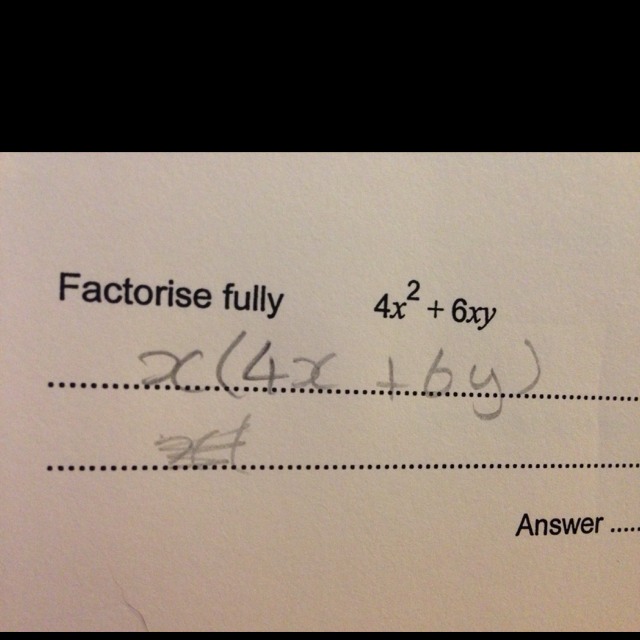 Factorise fully 4x² + 6xy
x(4x + 6y)
Answer .....